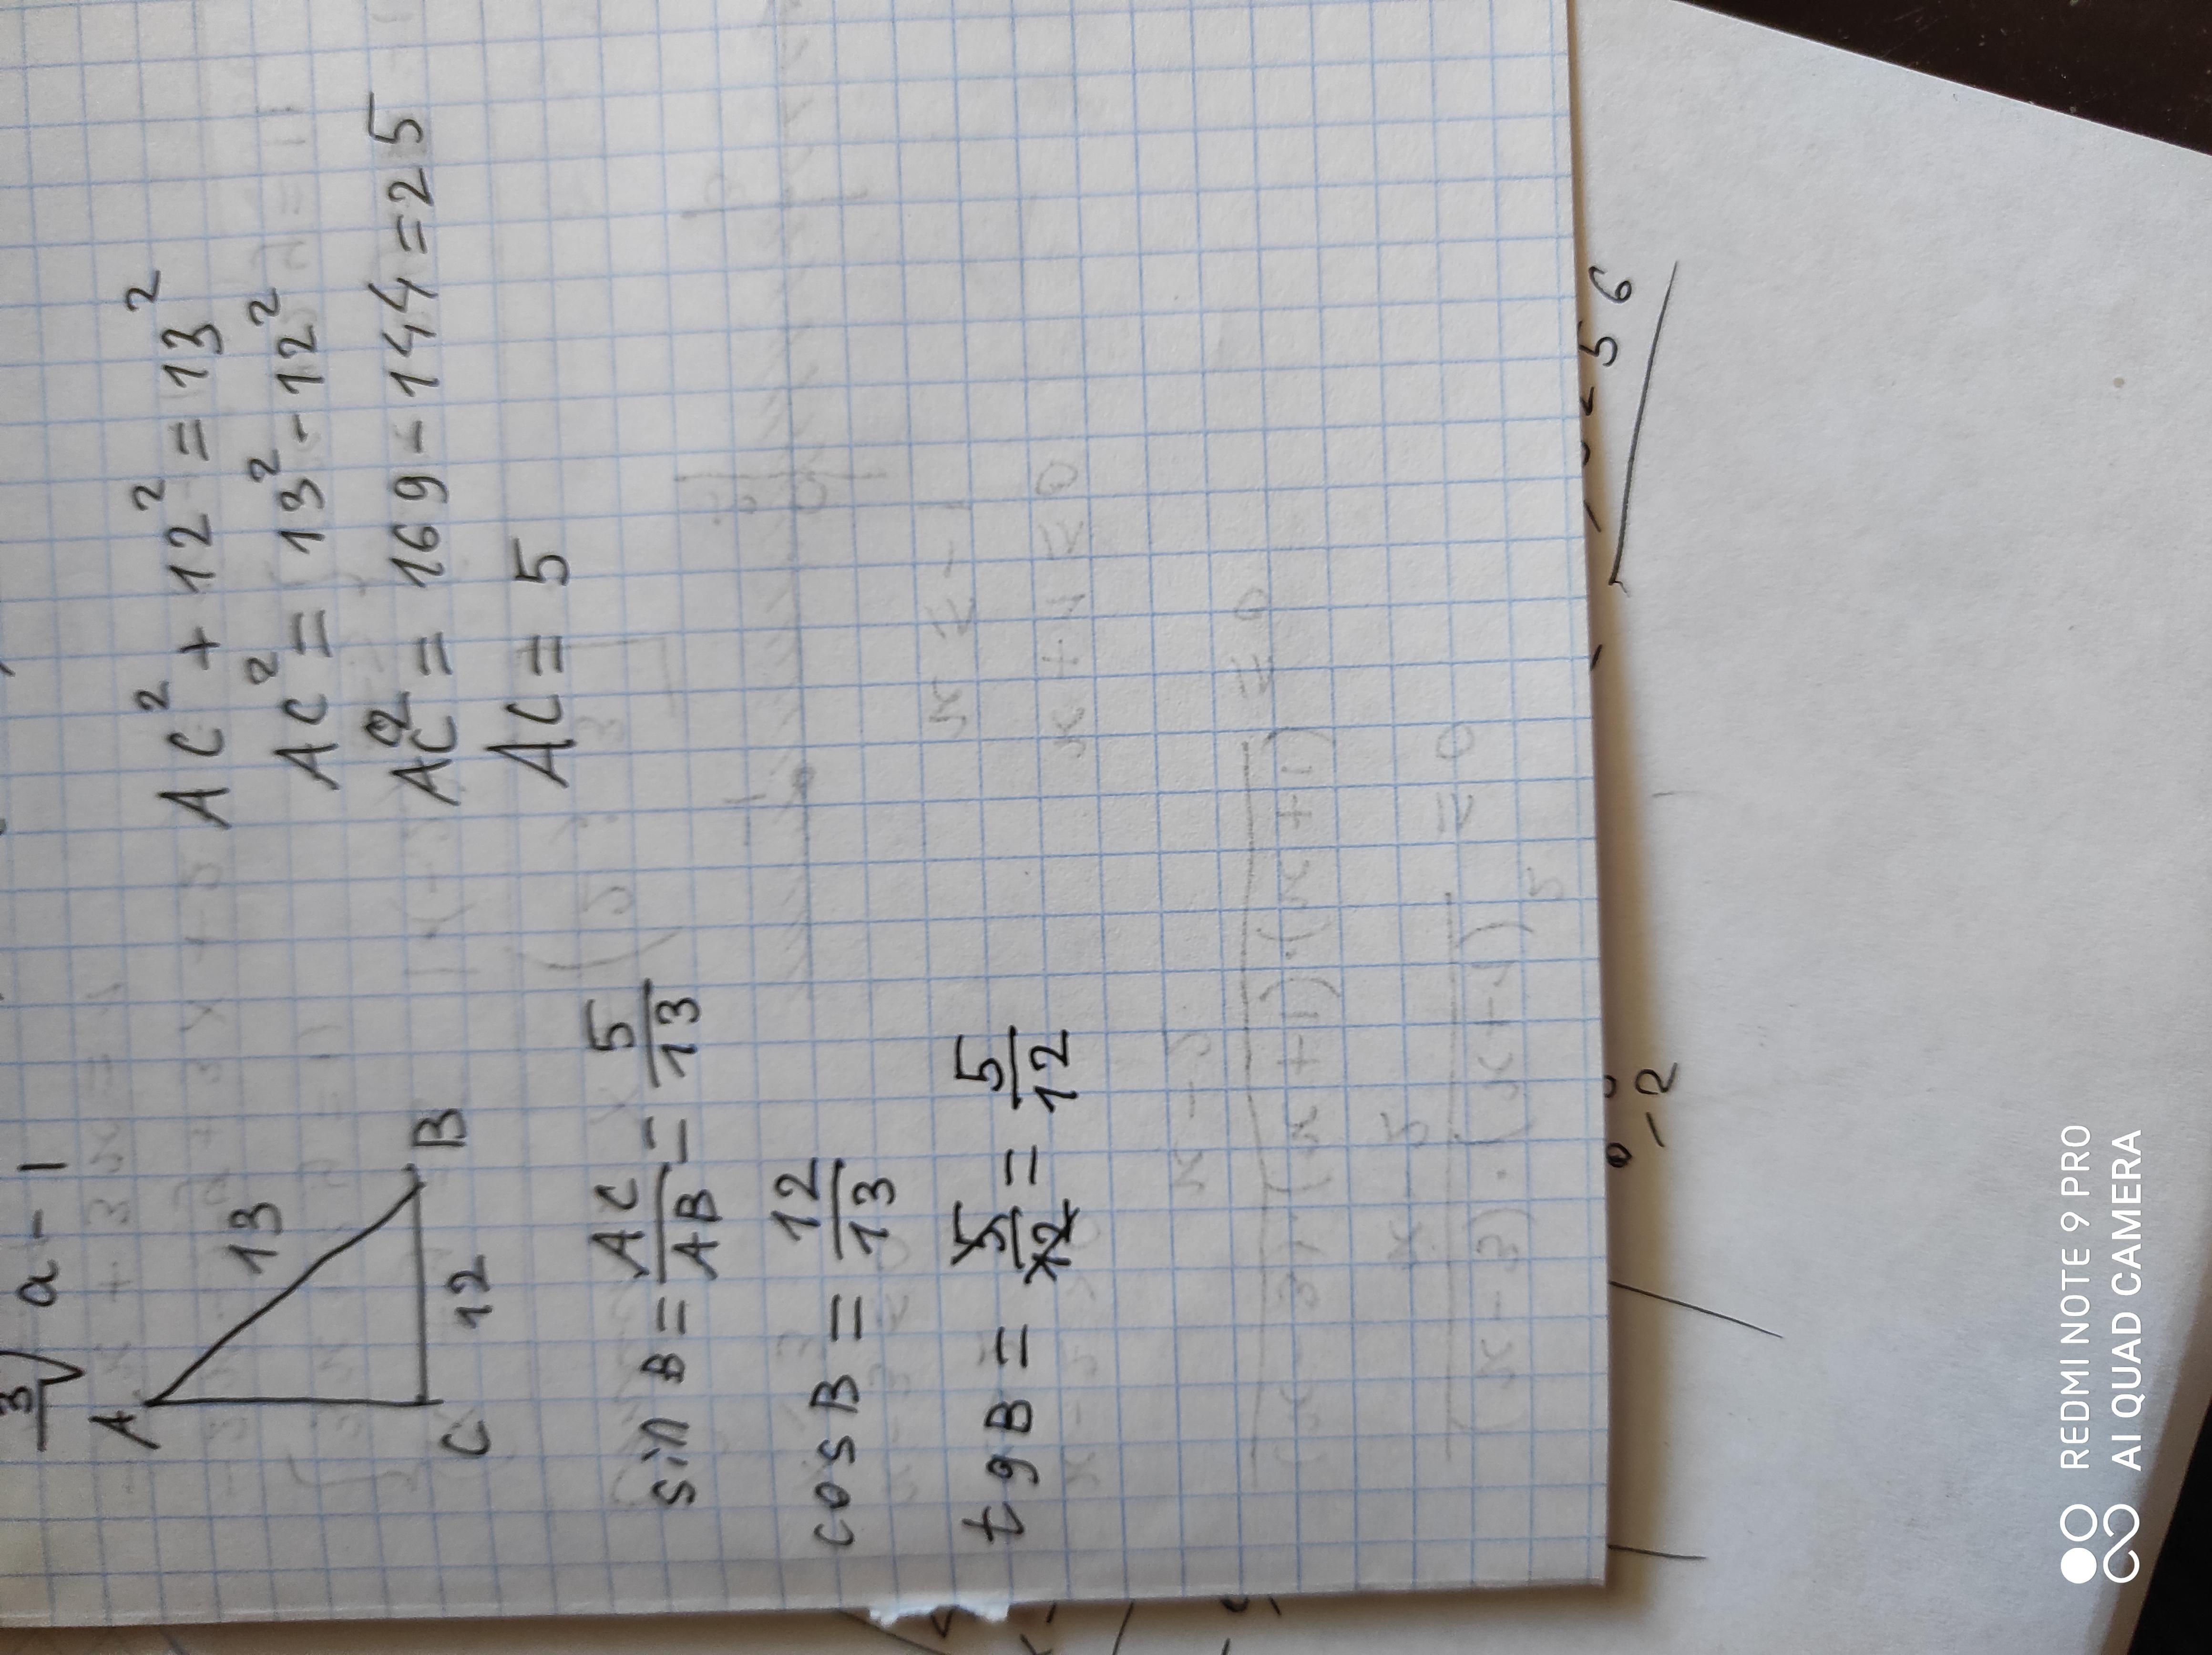 3√ a - 1
A
13
B
C
12
AC² + 12² = 13²
AC² = 13² - 12²
AC² = 169 - 144 = 25
AC = 5
sin B = AC/AB = 5/13
cos B = 12/13
tg B = 5/12 = 5/12
256
-2
REDMI NOTE 9 PRO
AI QUAD CAMERA